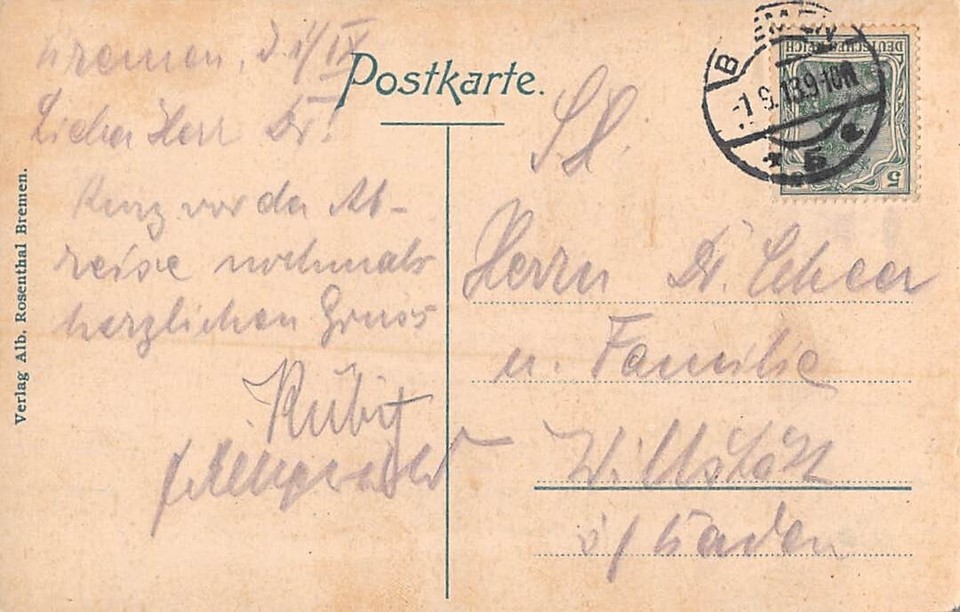 Bremen, d 1/IX
Postkarte.
Lieber Herr Dr!
Kurz vor der Ab-
reise nochmals
herzlichen Gruss
Verlag Alb. Rosenthal Bremen.
BREMEN
-1.9.13.9-10N
* 5 a
DEUTSCHES REICH
5
Herrn Dr. Scheer
u. Familie
Willstätt
i/Baden